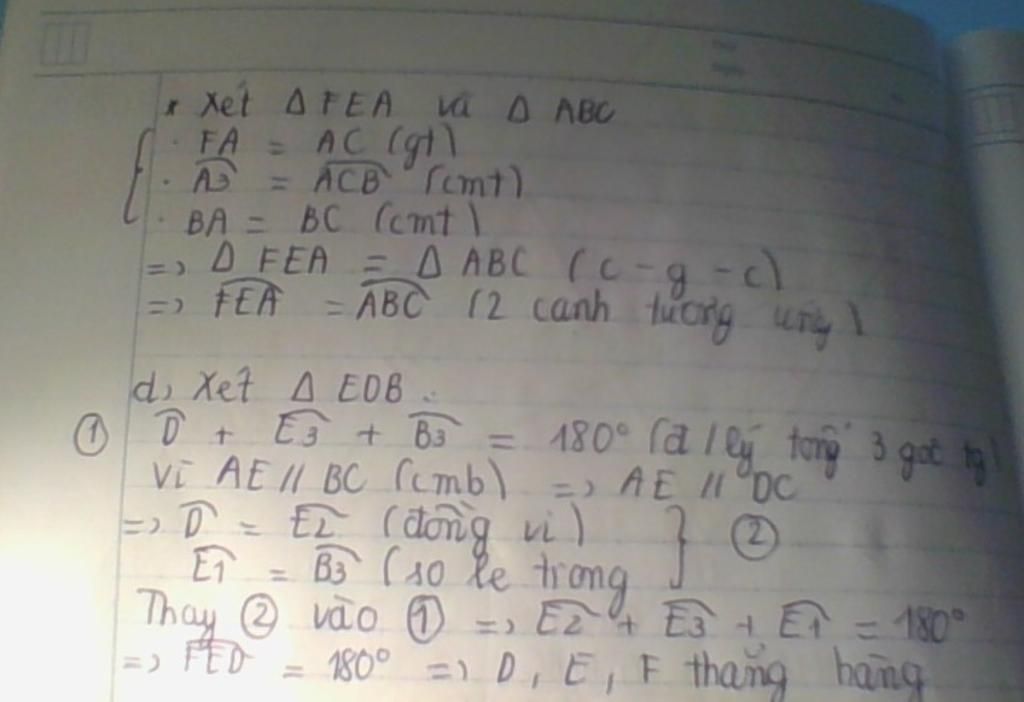 * Xét Δ FEA và Δ ABC
· FA = AC (gt)
· A3 = ACB (cmt)
· BA = BC (cmt)
=> Δ FEA = Δ ABC (c - g - c)
=> FEA = ABC (2 cạnh tương ứng)
d, Xét Δ EDB
① D + E3 + B3 = 180° (đ/lý tổng 3 góc tg)
Vì AE // BC (cmb) => AE // DC
=> D = E2 (đồng vị) } ②
E1 = B3 (so le trong
Thay ② vào ① => E2 + E3 + E1 = 180°
=> FED = 180° => D, E, F thẳng hàng